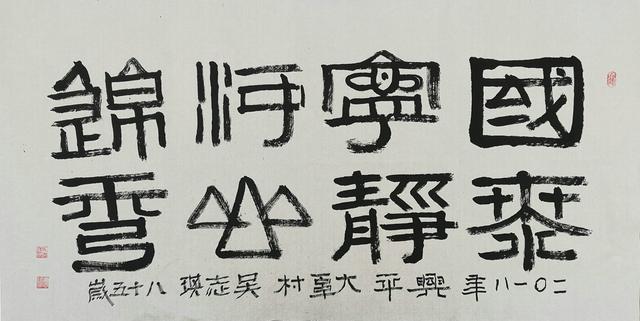 國泰
寧靜
河山
錦秀
二〇一八年興平大阜村吴志瑛八十五歲